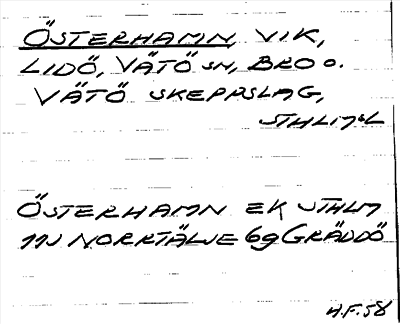 ÖSTERHAMN, VIK,
LIDÖ, VÄTÖ SN, BRO O.
VÄTÖ SKEPPSLAG,
STHLMS L
ÖSTERHAMN EK STHLM
11J NORRTÄLJE 6g GRÄDDÖ
H.F. 58